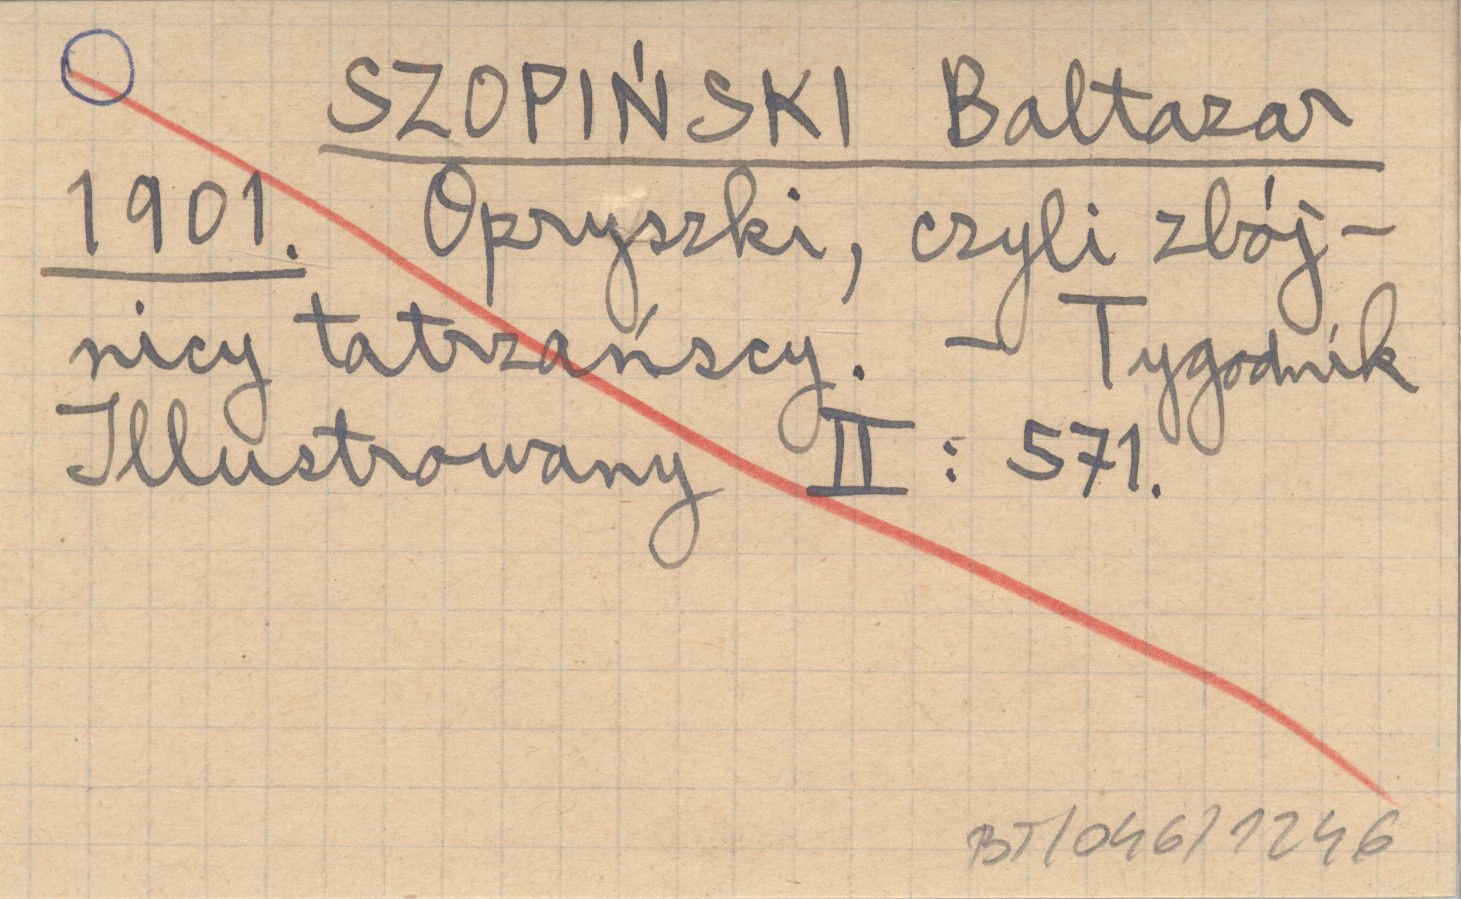 SZOPIŃSKI Baltazar
1901. Opryszki, czyli zbój-
nicy tatrzańscy. - Tygodnik
Illustrowany II : 571.
BT/046/1246